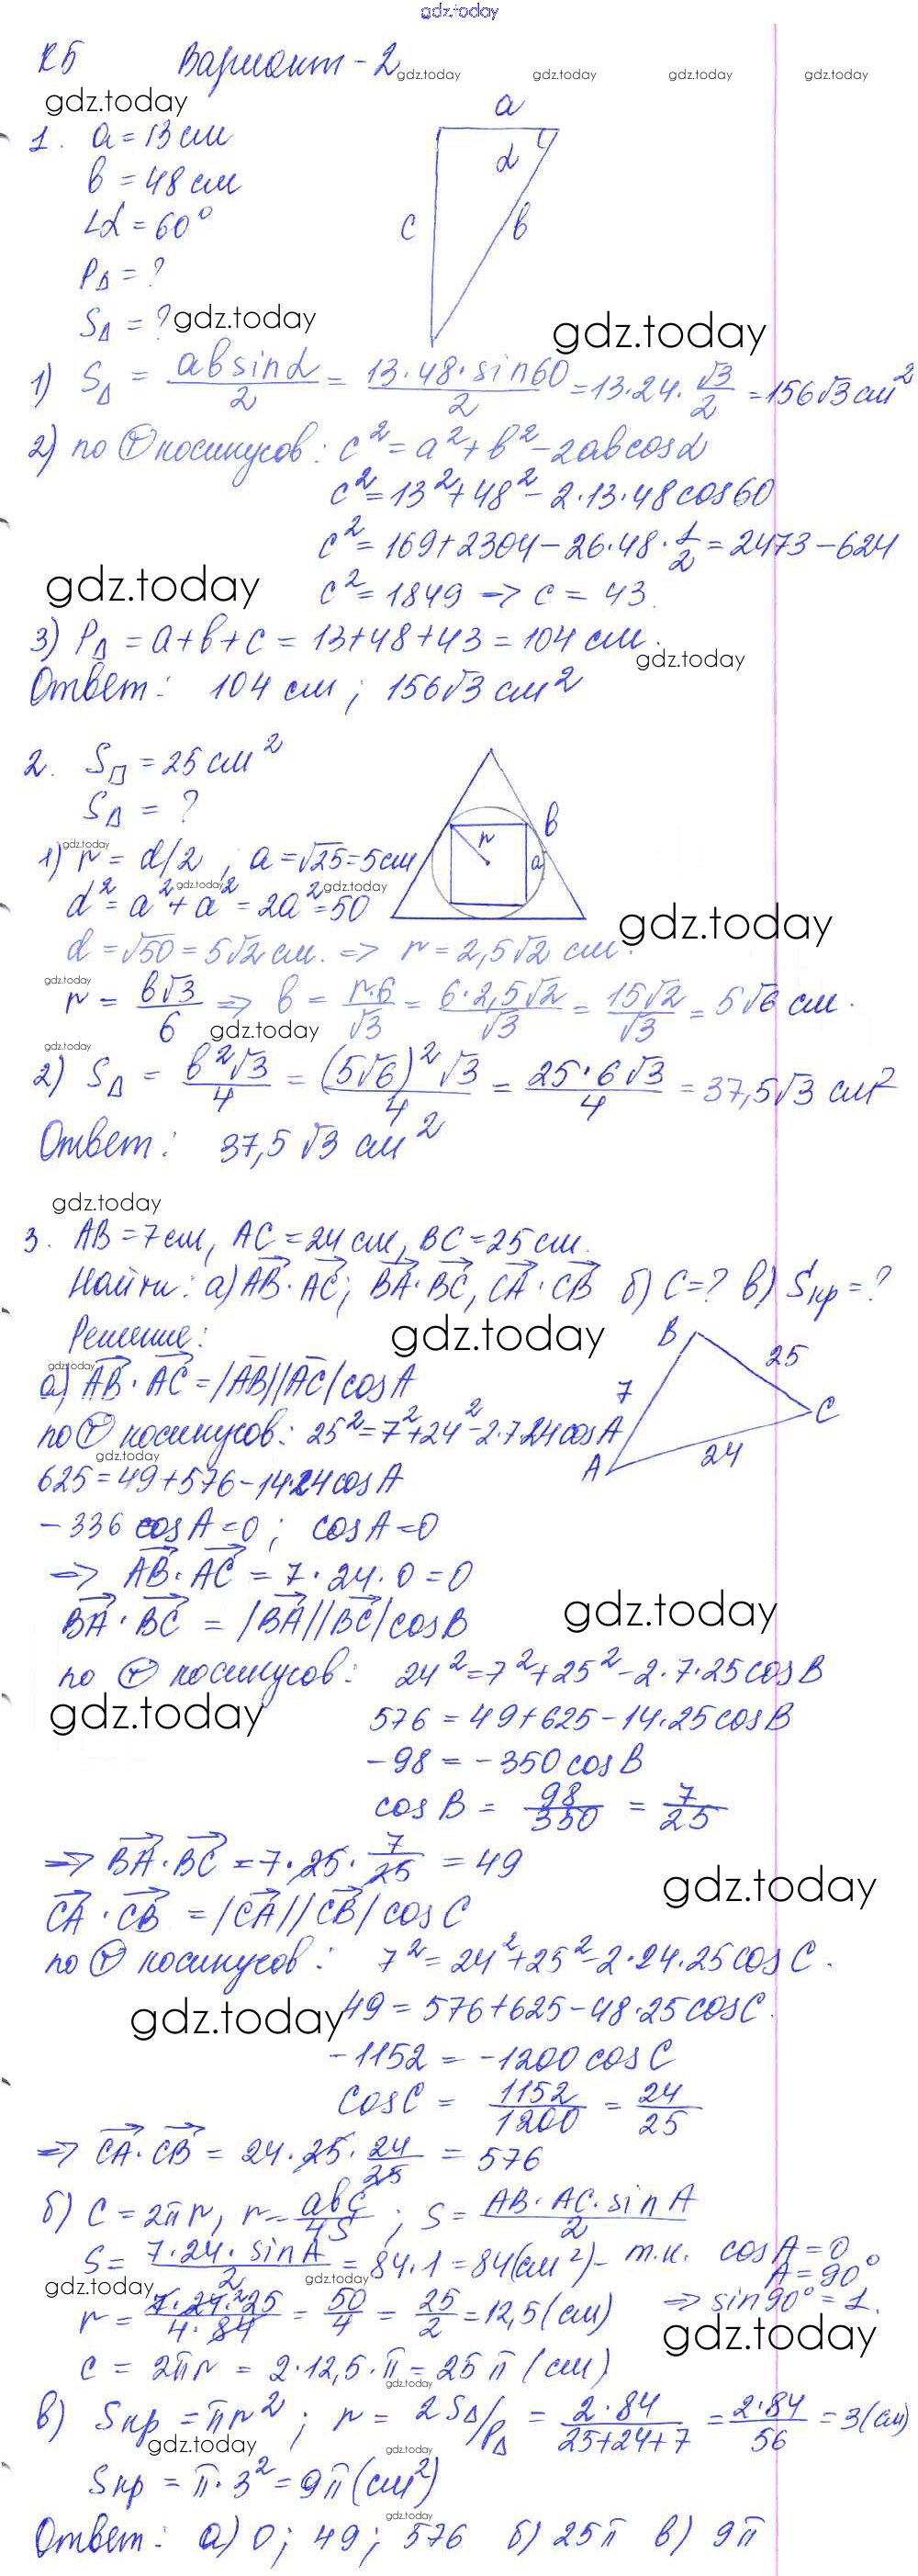 gdz.today
К5 Вариант-2
gdz.today gdz.today gdz.today gdz.today
gdz.today
1. a = 13 см
b = 48 см
∠α = 60°
P△ = ?
S△ = ?
gdz.today
a
α
c
b
gdz.today
1) S△ = ab sinα / 2 = 13·48·sin60 / 2 = 13·24·√3/2 = 156√3 см²
2) по Ⓣ косинусов: c² = a² + b² - 2ab cosα
c² = 13² + 48² - 2·13·48 cos60
c² = 169 + 2304 - 26·48·1/2 = 2473 - 624
gdz.today
c² = 1849 => c = 43.
3) P△ = a + b + c = 13 + 48 + 43 = 104 см.
gdz.today
Ответ: 104 см; 156√3 см²
2. S▱ = 25 см²
S△ = ?
gdz.today
1) r = d/2, a = √25 = 5 см
gdz.today gdz.today
d² = a² + a² = 2a² = 50
r
b
a
gdz.today
d = √50 = 5√2 см. => r = 2,5√2 см.
gdz.today
r = b√3 / 6 => b = r·6 / √3 = 6·2,5√2 / √3 = 15√2 / √3 = 5√6 см.
gdz.today
gdz.today
2) S△ = b²√3 / 4 = (5√6)²√3 / 4 = 25·6√3 / 4 = 37,5√3 см²
Ответ: 37,5√3 см²
gdz.today
3. AB = 7 см, AC = 24 см, BC = 25 см.
Найти: а) AB·AC; BA·BC, CA·CB б) C = ? в) Sкр = ?
Решение:
gdz.today
B
25
7
C
A
24
gdz.today
а) AB·AC = |AB||AC| cosA
по Ⓣ косинусов: 25² = 7² + 24² - 2·7·24 cosA
gdz.today
625 = 49 + 576 - 14·24 cosA
-336 cosA = 0; cosA = 0
=> AB·AC = 7·24·0 = 0
gdz.today
BA·BC = |BA||BC| cosB
по Ⓣ косинусов: 24² = 7² + 25² - 2·7·25 cosB
gdz.today
576 = 49 + 625 - 14·25 cosB
-98 = -350 cosB
cosB = 98/350 = 7/25
=> BA·BC = 7·25·7/25 = 49
gdz.today
CA·CB = |CA||CB| cosC
по Ⓣ косинусов: 7² = 24² + 25² - 2·24·25 cosC.
gdz.today
49 = 576 + 625 - 48·25 cosC.
-1152 = -1200 cosC
cosC = 1152/1200 = 24/25
=> CA·CB = 24·25·24/25 = 576
б) C = 2πr, r = abc / 4S; S = AB·AC·sinA / 2
S = 7·24·sinA / 2 = 84·1 = 84 (см²) - т.к. cosA = 0
A = 90°
gdz.today gdz.today
=> sin90° = 1.
r = 7·24·25 / 4·84 = 50/4 = 25/2 = 12,5 (см)
gdz.today
C = 2πr = 2·12,5·π = 25π (см)
gdz.today
в) Sкр = πr²; r = 2S△/P△ = 2·84 / 25+24+7 = 2·84 / 56 = 3 (см)
gdz.today
gdz.today
Sкр = π·3² = 9π (см²)
gdz.today
Ответ: а) 0; 49; 576 б) 25π в) 9π